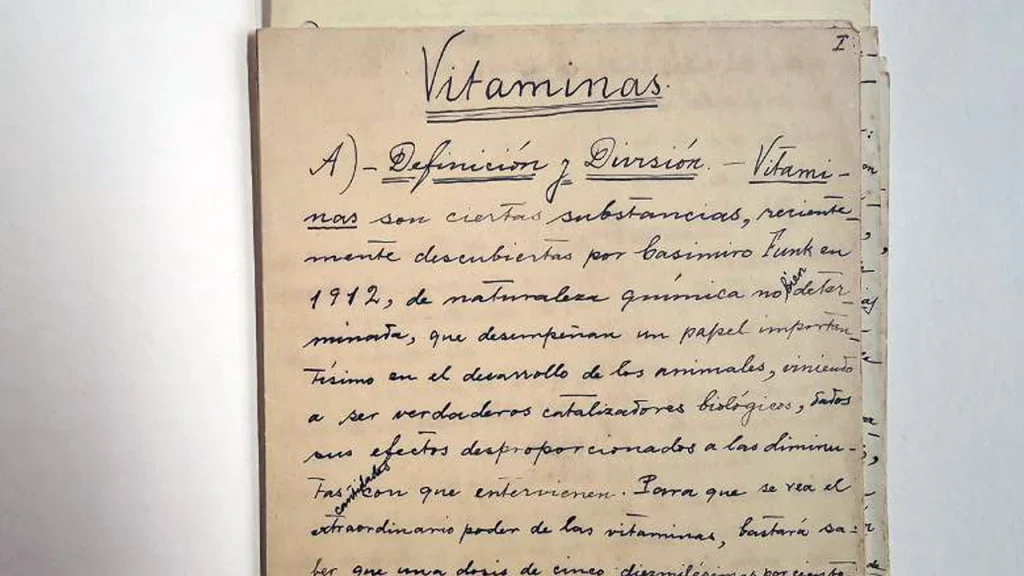 I
Vitaminas.
A) - Definición y División. - Vitami-
nas son ciertas substancias, reciente-
mente descubiertas por Casimiro Funk en
1912, de naturaleza química no bien deter-
minada, que desempeñan un papel importan-
tísimo en el desarrollo de los animales, viniendo
a ser verdaderos catalizadores biológicos, dados
sus efectos desproporcionados a las diminu-
tas cantidades con que intervienen. Para que se vea el
extraordinario poder de las vitaminas, bastará sa-
ber que una dosis de cinco diezmilésimas por ciento